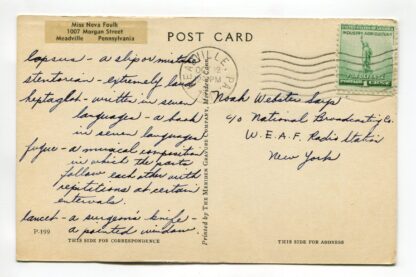 Miss Neva Foulk
1007 Morgan Street
Meadville Pennsylvania
POST CARD
lapsus – a slip or mistake
stentorian – extremely loud
heptaglot – written in seven
languages – a book
in seven languages
fugue – a musical composition
in which the parts
follow each other with
repititions at certain
intervals.
lancet – a surgeon's knife –
a pointed window
P-199
THIS SIDE FOR CORRESPONDENCE
Printed by THE MERIDEN GRAVURE COMPANY, Meriden, Conn.
PA.
PM
UNITED STATES OF AMERICA
INDUSTRY AGRICULTURE
FOR DEFENSE
Noah Webster Says
c/o National Broadcasting Co.
W.E.A.F. Radio Station
New York
THIS SIDE FOR ADDRESS